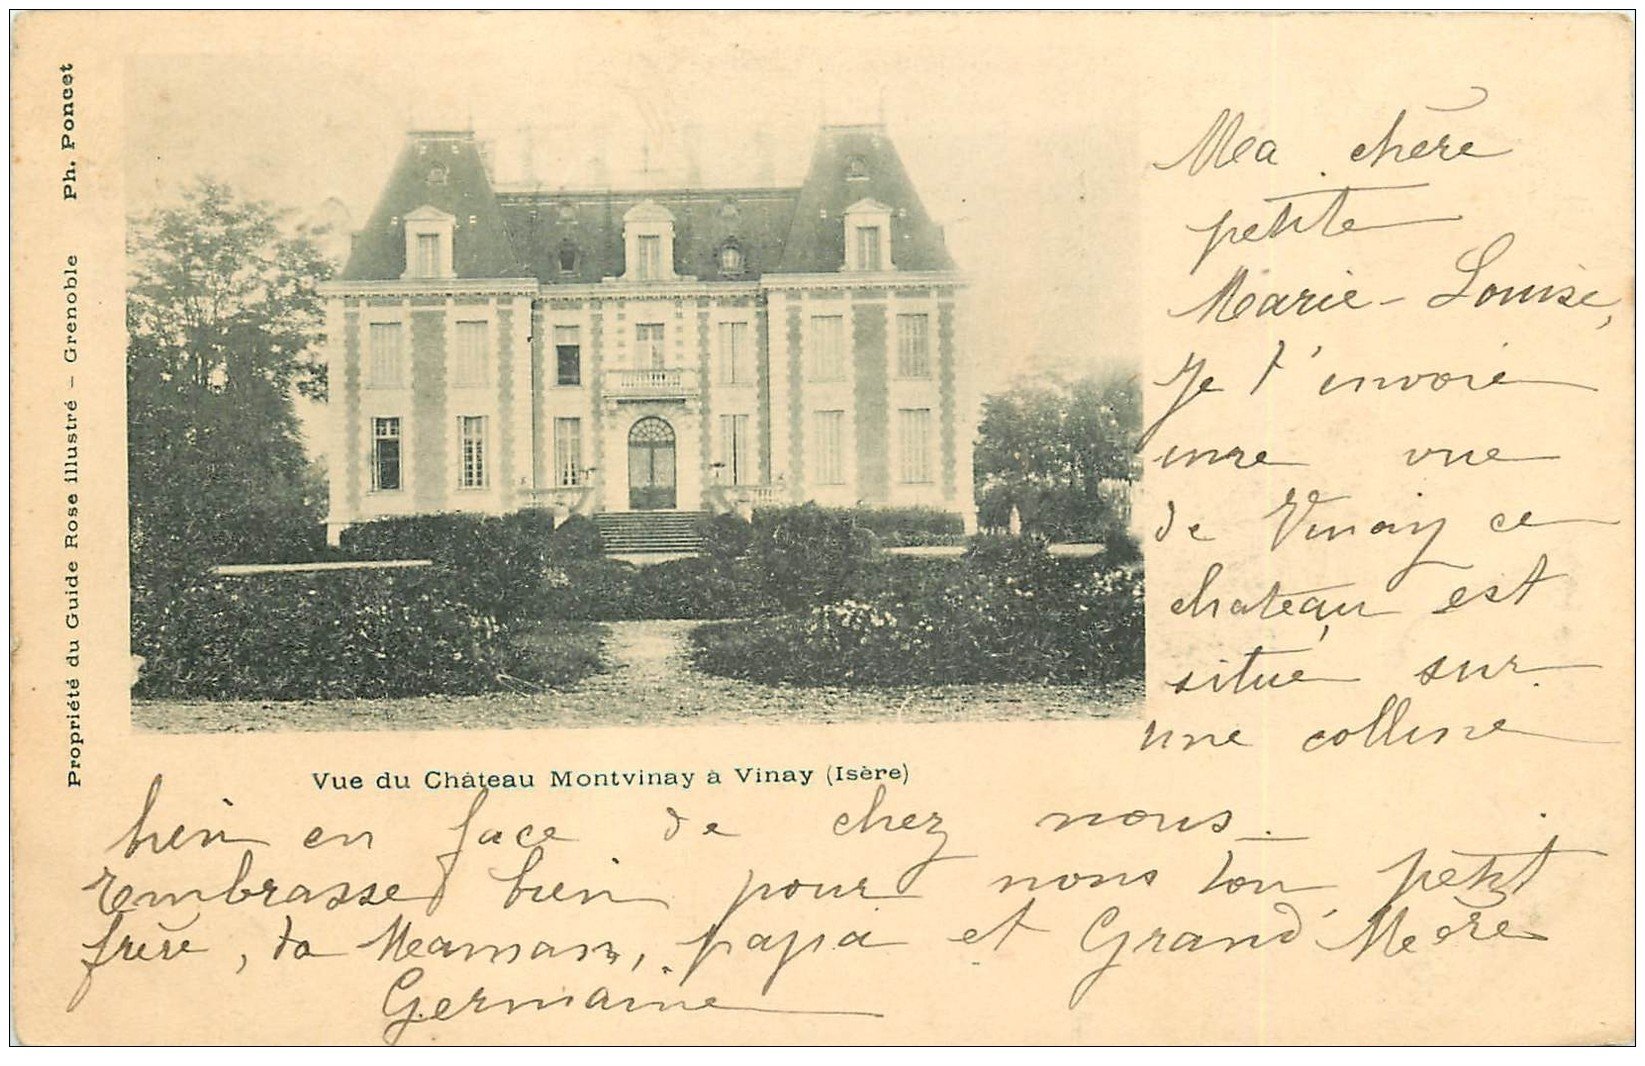 Propriété du Guide Rose illustré – Grenoble Ph. Poncet
Ma chère
petite
Marie-Louise,
Je t'envoie
une vue
de Vinay ce
chateau est
situé sur
une colline
Vue du Château Montvinay à Vinay (Isère)
bien en face de chez nous_
embrasse bien pour nous ton petit
frère, ta Maman, papa et Grand'Mère
Germaine